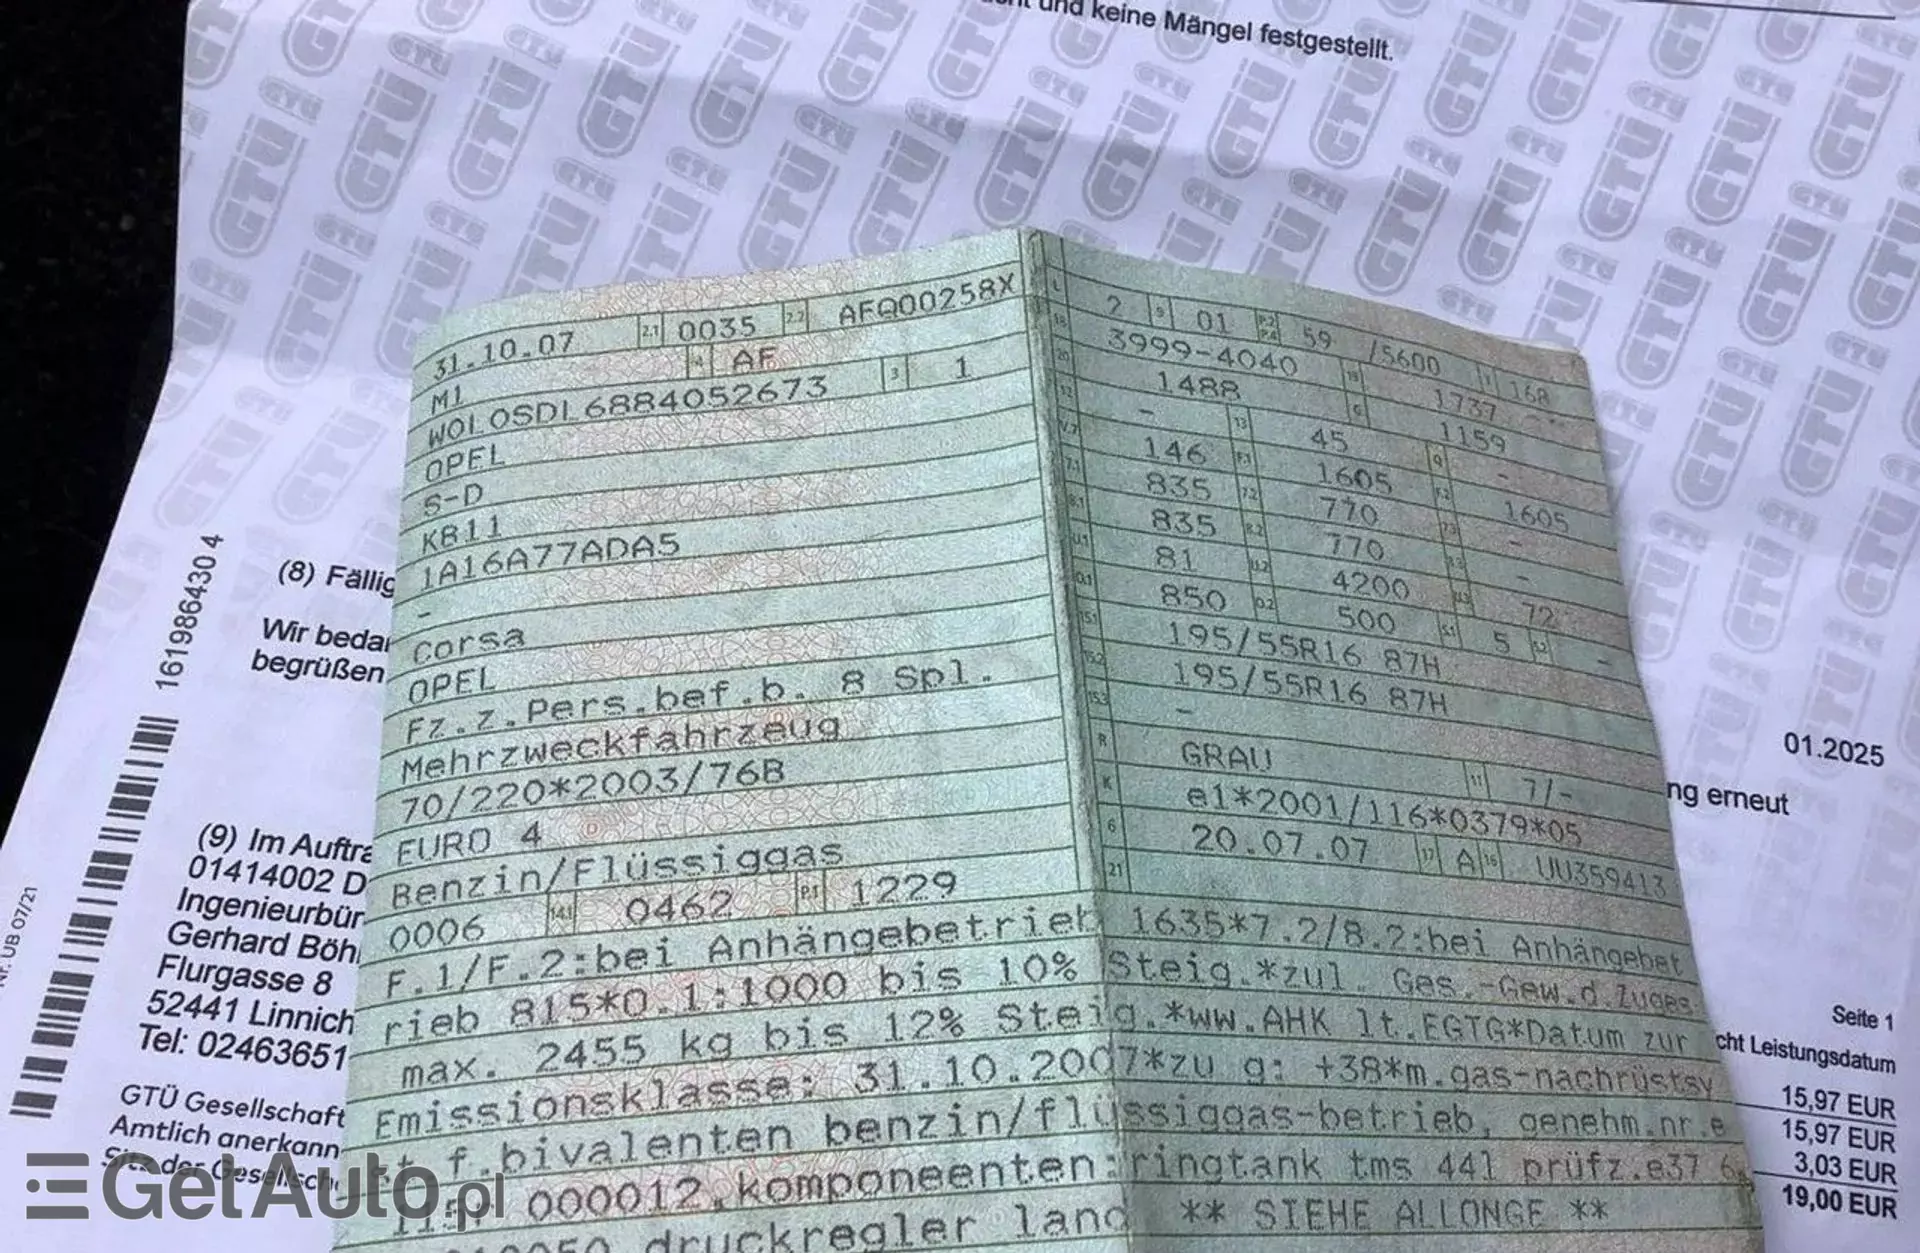 und keine Mängel festgestellt.
31.10.07 2.1 0035 2.2 AFQ00258X
M1 4 AF
W0L0SDL6884052673 3 1
OPEL
S-D
K811
1A16A77ADA5
-
Corsa
OPEL
Fz.z.Pers.bef.b. 8 Spl.
Mehrzweckfahrzeug
70/220*2003/76B
EURO 4
Benzin/Flüssiggas
0006 14.1 0462 P.1 1229
L 2 9 01 P.2 P.4 59 /5600 T 168
18 3999-4040 19 1737 -
20 1488 G 1159
12 - 13 45 Q -
V.7 146 F.1 1605 F.2 1605
7.1 835 7.2 770 7.3 -
8.1 835 8.2 770 8.3 -
U.1 81 U.2 4200 U.3 72
O.1 850 O.2 500 S.1 5 S.2 -
15.1 195/55R16 87H
15.2 195/55R16 87H
15.3 -
R GRAU 11 7/-
K e1*2001/116*0379*05
6 20.07.07 17 A 16 UU359413
21
F.1/F.2:bei Anhängebetrieb 1635*7.2/8.2:bei Anhängebet
rieb 815*O.1:1000 bis 10% Steig.*zul. Ges.-Gew.d.Zuges
max. 2455 kg bis 12% Steig.*ww.AHK lt.EGTG*Datum zur
Emissionsklasse: 31.10.2007*zu g: +38*m.gas-nachrüstsy
st f.bivalenten benzin/flüssiggas-betrieb, genehm.nr.e
000012,komponeenten:ringtank tms 44l prüfz.e37 6
druckregler land ** SIEHE ALLONGE **
(8) Fällig
Wir bedar
begrüßen
161986430 4
(9) Im Auftra
01414002 D
Ingenieurbür
Gerhard Böh
Flurgasse 8
52441 Linnich
Tel: 02463651
GTÜ Gesellschaft
Amtlich anerkann
Sitz der Gesellsch
Nr. UB 07/21
01.2025
ng erneut
Seite 1
cht Leistungsdatum
15,97 EUR
15,97 EUR
3,03 EUR
19,00 EUR
GetAuto.pl